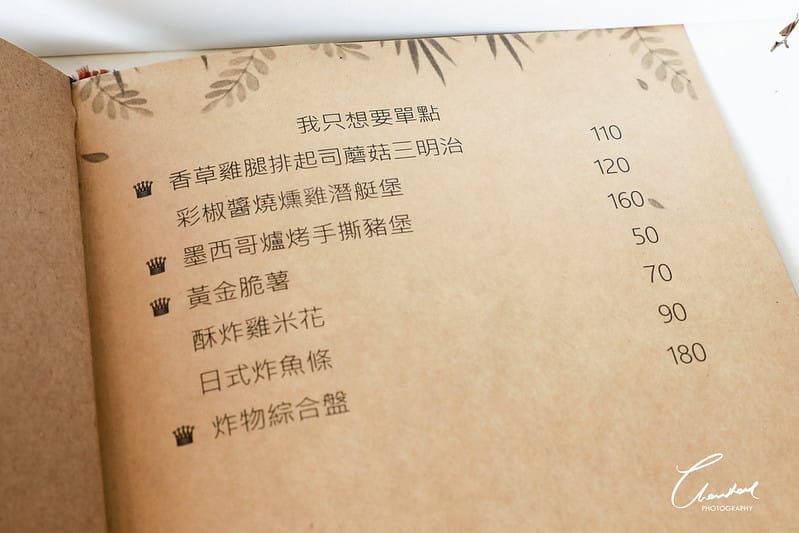 我只想要單點
香草雞腿排起司蘑菇三明治 110
彩椒醬燒燻雞潛艇堡 120
墨西哥爐烤手撕豬堡 160
黃金脆薯 50
酥炸雞米花 70
日式炸魚條 90
炸物綜合盤 180
PHOTOGRAPHY